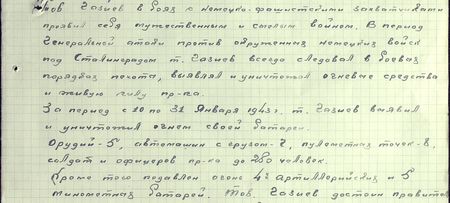 Тов Газиев в боях с немецко-фашистскими захватчиками
проявил себя мужественным и смелым воином. В период
Генеральной атаки против окруженных немецких войск
под Сталинградом т. Газиев всегда следовал в боевых
порядках пехоты, выявлял и уничтожал огневые средства
и живую силу пр-ка.
За период с 10 по 31 Января 1943 г. т. Газиев выявил
и уничтожил огнем своей батареи.
Орудий-5, автомашин с грузом-7, пулеметных точек-8,
солдат и офицеров пр-ка до 280 человек.
Кроме того подавлен огонь 4х артиллерийских и 5
минометных батарей. Тов. Газиев достоин правител